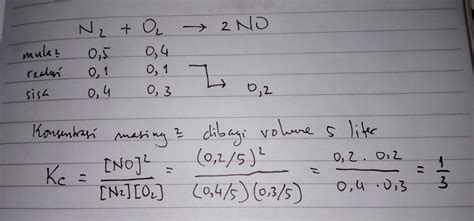 N₂ + O₂ → 2NO
mula² 0,5 0,4
reaksi 0,1 0,1
0,2
sisa 0,4 0,3
Konsentrasi masing² dibagi volume 5 liter
Kc = [NO]² / [N₂][O₂] = (0,2/5)² / (0,4/5)(0,3/5) = 0,2 . 0,2 / 0,4 . 0,3 = 1/3